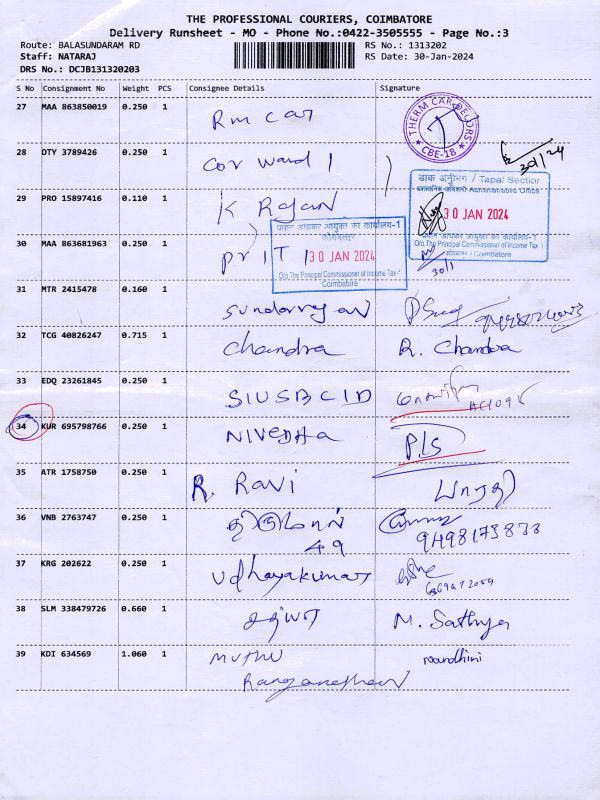 THE PROFESSIONAL COURIERS, COIMBATORE
Delivery Runsheet - MO - Phone No.:0422-3505555 - Page No.:3
Route: BALASUNDARAM RD RS No.: 1313202
Staff: NATARAJ RS Date: 30-Jan-2024
DRS No.: DCJB131320203
S No Consignment No Weight PCS Consignee Details Signature
27 MAA 863850019 0.250 1 Rm car THERM CAR DECORS CBE-18
28 DTY 3789426 0.250 1 Cor ward 1 30/1/24
डाक अनुभाग / Tapal Section
Administrative Office
29 PRO 15897416 0.110 1 K Rajan 30 JAN 2024
प्रधान आयकर आयुक्त का कार्यालय-1
O/o.The Principal Commissioner of Income Tax-1
कोयम्बत्तूर / Coimbatore
30/1
30 MAA 863681963 0.250 1 pr IT 1 30 JAN 2024
O/o.The Principal Commissioner of Income Tax-1
Coimbatore
31 MTR 2415478 0.160 1 Sundarrajan
32 TCG 40826247 0.715 1 Chandra R. Chandra
33 EDQ 23261845 0.250 1 SIUSBCID
34 KUR 695798766 0.250 1 NIVEDHA P.lS
35 ATR 1758750 0.250 1 R. Ravi பாரதி
36 VNB 2763747 0.250 1 திருமால்
49 9498173833
37 KRG 202622 0.250 1 Udhayakumar
38 SLM 338479726 0.660 1 சத்யா M. Sathya
39 KDI 634569 1.060 1 Muthu nandhini
Ranganathan